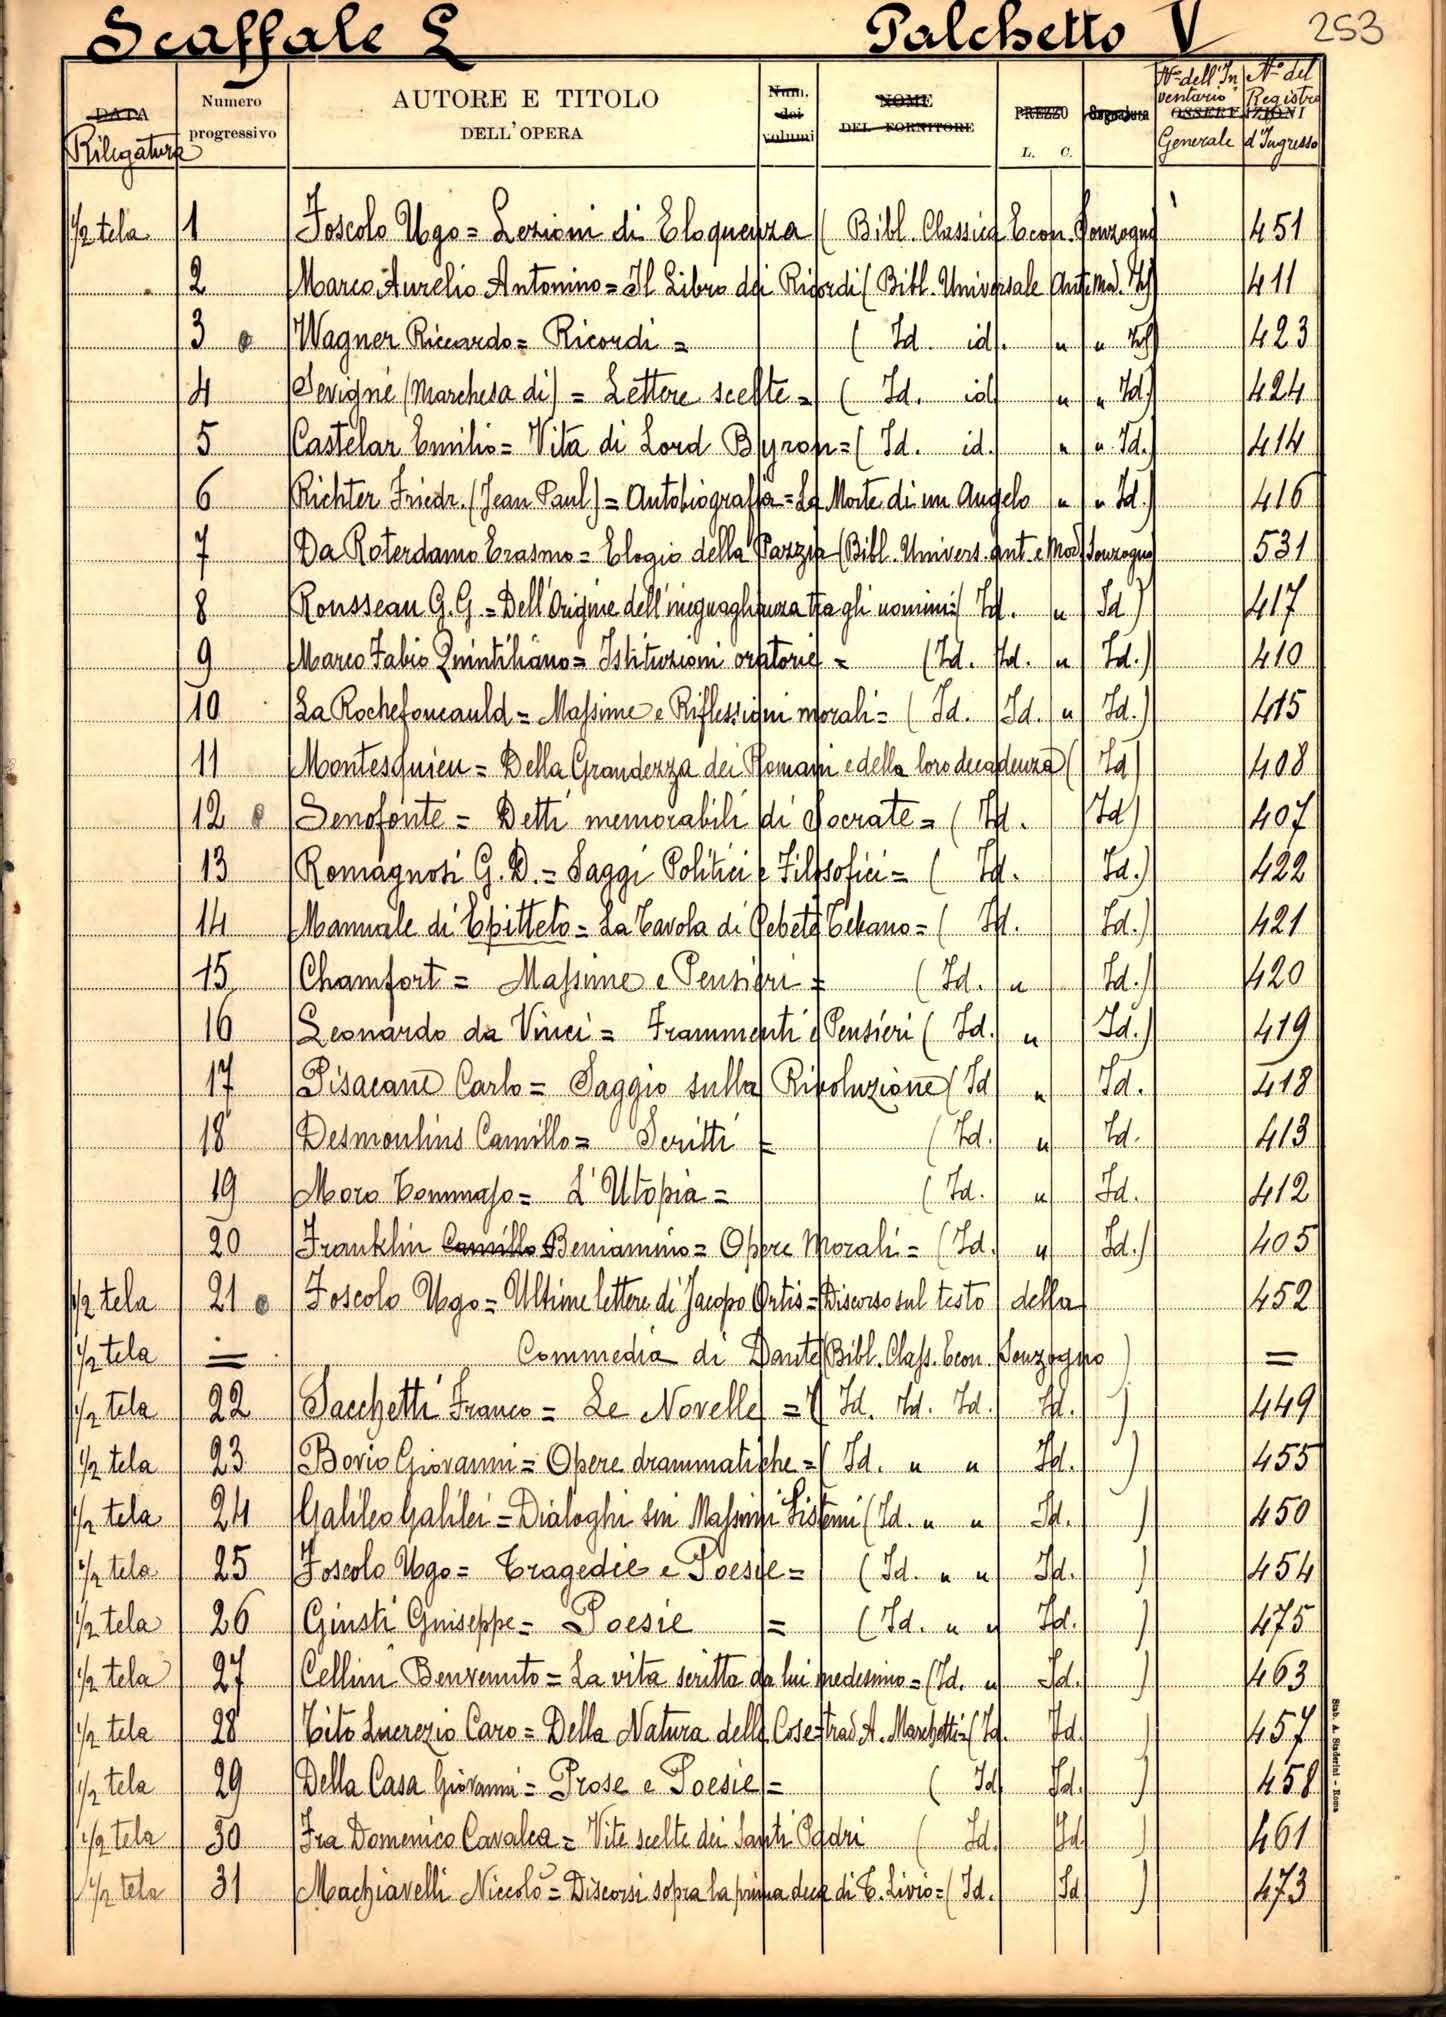 Scaffale L Palchetto V 253
DATA Rilegatura Numero progressivo AUTORE E TITOLO DELL'OPERA Num. dei volumi NOME DEL FORNITORE PREZZO L. C. Segnatura OSSERVAZIONI N° dell'Inventario Generale N° del Registro d'Ingresso
1/2 tela 1 Foscolo Ugo = Lezioni di Eloquenza ( Bibl. Classica Econ. Sonzogno) 451
2 Marco Aurelio Antonino = Il Libro dei Ricordi ( Bibl. Universale Ant. e Mod. Id) 411
3 Wagner Riccardo = Ricordi = ( Id. id. " " Id) 423
4 Sevigné (Marchesa di) = Lettere scelte = ( Id. id " " Id.) 424
5 Castelar Emilio = Vita di Lord Byron = ( Id. id. " " Id.) 414
6 Richter Friedr. (Jean Paul) = Autobiografia = La Morte di un Angelo " " Id.) 416
7 Da Roterdamo Erasmo = Elogio della Pazzia (Bibl. Univers. ant. e Mod. Sonzogno) 531
8 Rousseau G. G. = Dell'Origine dell'ineguaglianza tra gli uomini = ( Id. " Id ) 417
9 Marco Fabio Quintiliano = Istituzioni oratorie = (Id. Id. " Id.) 410
10 La Rochefoucauld = Massime e Riflessioni morali = ( Id. Id. " Id.) 415
11 Montesquieu = Della Grandezza dei Romani e della loro decadenza ( Id) 408
12 Senofonte = Detti memorabili di Socrate = ( Id. Id) 407
13 Romagnosi G. D. = Saggi Politici e Filosofici = ( Id. Id.) 422
14 Manuale di Epitteto = La Tavola di Cebete Tebano = ( Id. Id.) 421
15 Chamfort = Massime e Pensieri = ( Id. " Id.) 420
16 Leonardo da Vinci = Frammenti e Pensieri ( Id. " Id.) 419
17 Pisacane Carlo = Saggio sulla Rivoluzione ( Id " Id. 418
18 Desmoulins Camillo = Scritti = ( Id. " Id. 413
19 Moro Tommaso = L'Utopia = ( Id. " Id. 412
20 Franklin Camillo Beniamino = Opere Morali = ( Id. " Id.) 405
1/2 tela 21 Foscolo Ugo = Ultime lettere di Jacopo Ortis = Discorso sul testo della 452
1/2 tela = Commedia di Dante (Bibl. Class. Econ. Sonzogno ) =
1/2 tela 22 Sacchetti Franco = Le Novelle = ( Id. Id. Id. Id. ) 449
1/2 tela 23 Bovio Giovanni = Opere drammatiche = ( Id. " " Id. ) 455
1/2 tela 24 Galileo Galilei = Dialoghi sui Massimi Sistemi ( Id. " " Id. ) 450
1/2 tela 25 Foscolo Ugo = Tragedie e Poesie = ( Id. " " Id. ) 454
1/2 tela 26 Giusti Guiseppe = Poesie = ( Id. " " Id. ) 475
1/2 tela 27 Cellini Benvenuto = La vita scritta da lui medesimo = ( Id. " Id. ) 463
1/2 tela 28 Tito Lucrezio Caro = Della Natura delle Cose = trad. A. Marchetti = ( Id. Id. ) 457
1/2 tela 29 Della Casa Giovanni = Prose e Poesie = ( Id Id. ) 458
1/2 tela 30 Fra Domenico Cavalca = Vite scelte dei Santi Padri ( Id. Id ) 461
1/2 tela 31 Machiavelli Niccolò = Discorsi sopra la prima deca di T. Livio = ( Id. Id ) 473
Stab. A. Staderini - Roma